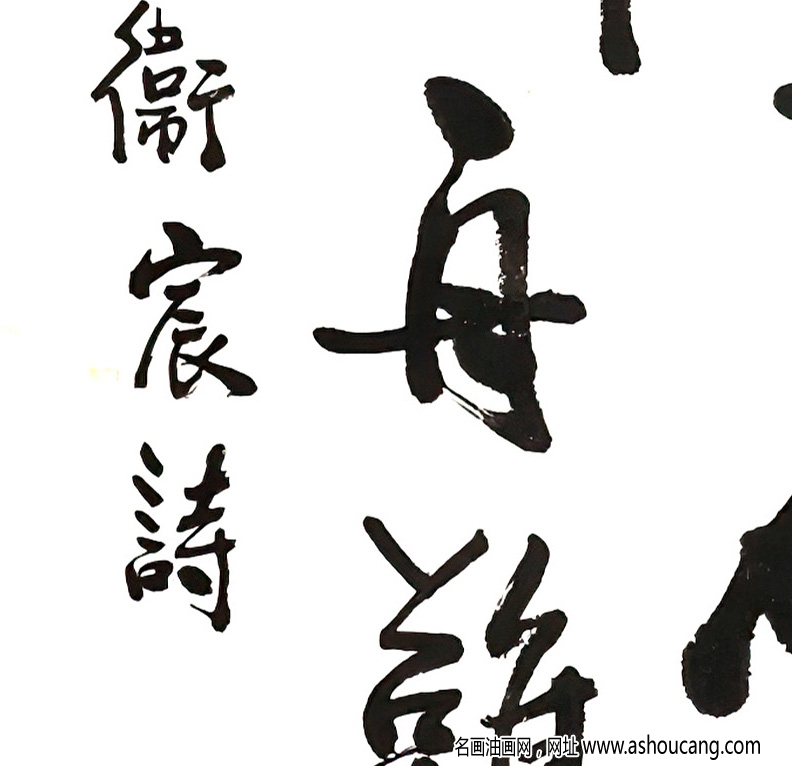 舟
衞宸詩
名画油画网，网址 www.ashoucang.com